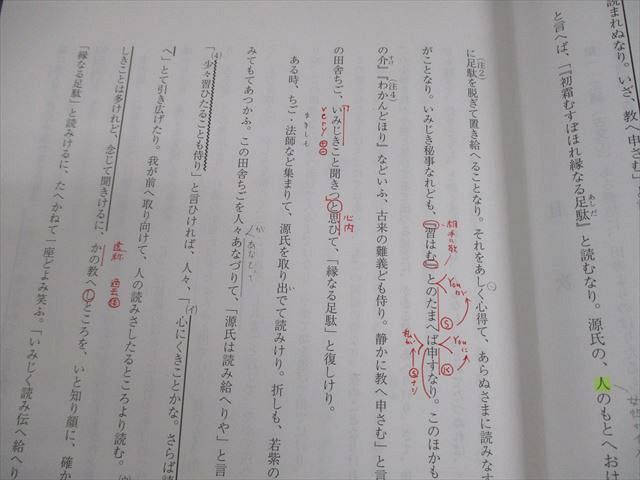 読まれぬなり。いざ、教へ申さむ」
と言へば、「『初霜むすぼほれ縁なる足駄』と読むなり。源氏の、人のもとへおけ
あしだ
(注2)
に足駄を脱ぎて置き給へることなり。それをあしく心得て、あらぬさまに読みなす
がことなり。いみじき秘事なれども、「習はむ」とのたまへば申すなり。このほかも
(注4)
の介』『わかんどほり』などいふ、古来の難義ども侍り。静かに教へ申さむ」と言
の田舎ちご、「いみじきこと聞きつ」と思ひて、「縁なる足駄」と復しけり。
very
心内
ある時、ちご・法師など集まりて、源氏を取り出でて読みけり。折しも、若紫の
みてもてあつかふ。この田舎ちごを人々あなづりて、「源氏は読み給へりや」と言
(4)
「少々習ひたることも侍り」と言ひければ、人々、「心にくきことかな。さらば読
(イ)
へ」とて引き広げたり。我が前へ取り向けて、人の読みさしたるところより読む。
(ウ)
しきことは多けれど、念じて聞きけるに、かの教へしところを、いと知り顔に、確か
過去
「縁なる足駄」と読みけるに、たへかねて一座どよみ笑ふ。「いみじく読み伝へ給へり